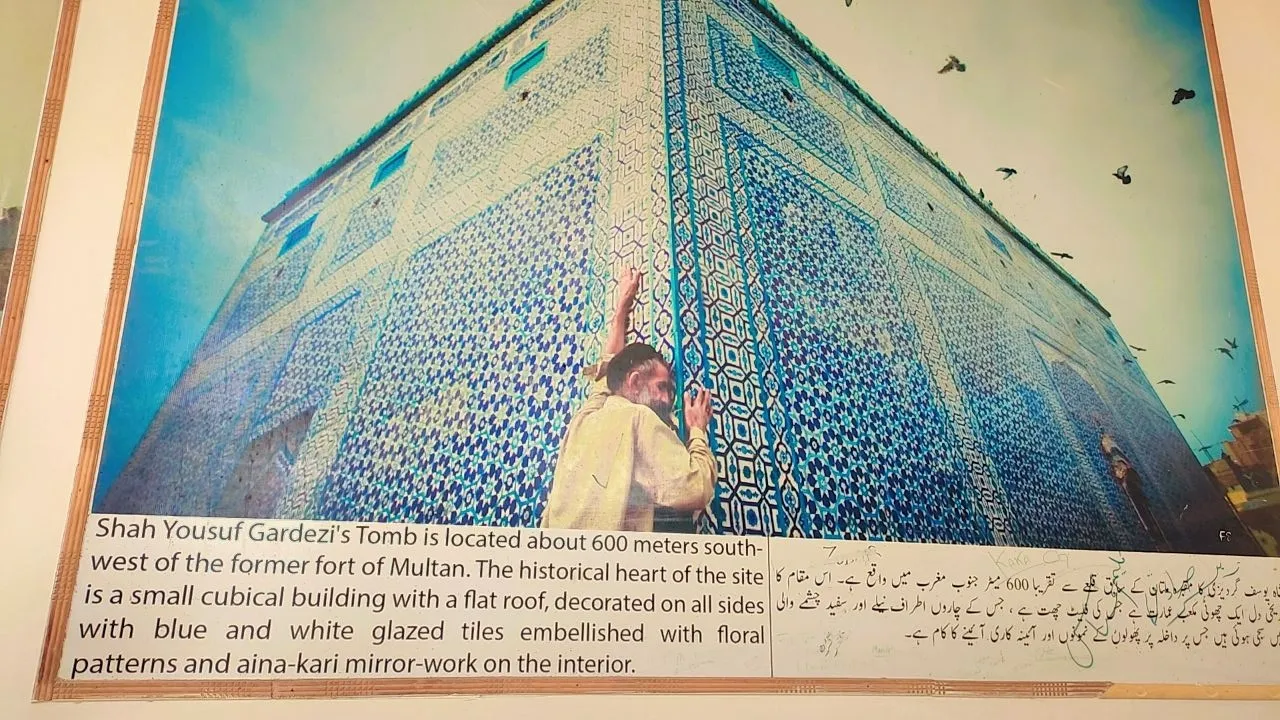 Shah Yousuf Gardezi's Tomb is located about 600 meters south-
west of the former fort of Multan. The historical heart of the site
is a small cubical building with a flat roof, decorated on all sides
with blue and white glazed tiles embellished with floral
patterns and aina-kari mirror-work on the interior.
یوسف گردیزی کا مقبرہ ملتان کے سابق قلعے سے تقریبا 600 میٹر جنوب مغرب میں واقع ہے۔ اس مقام کا
دل ایک چھوٹی مکعب عمارت ہے جس کی فلیٹ چھت ہے، جس کے چاروں اطراف نیلے اور سفید چشمے والی
سجی ہوئی ہیں جس پر داخلہ پر پھولوں کے نمونوں اور آئینہ کاری آئینے کا کام ہے۔